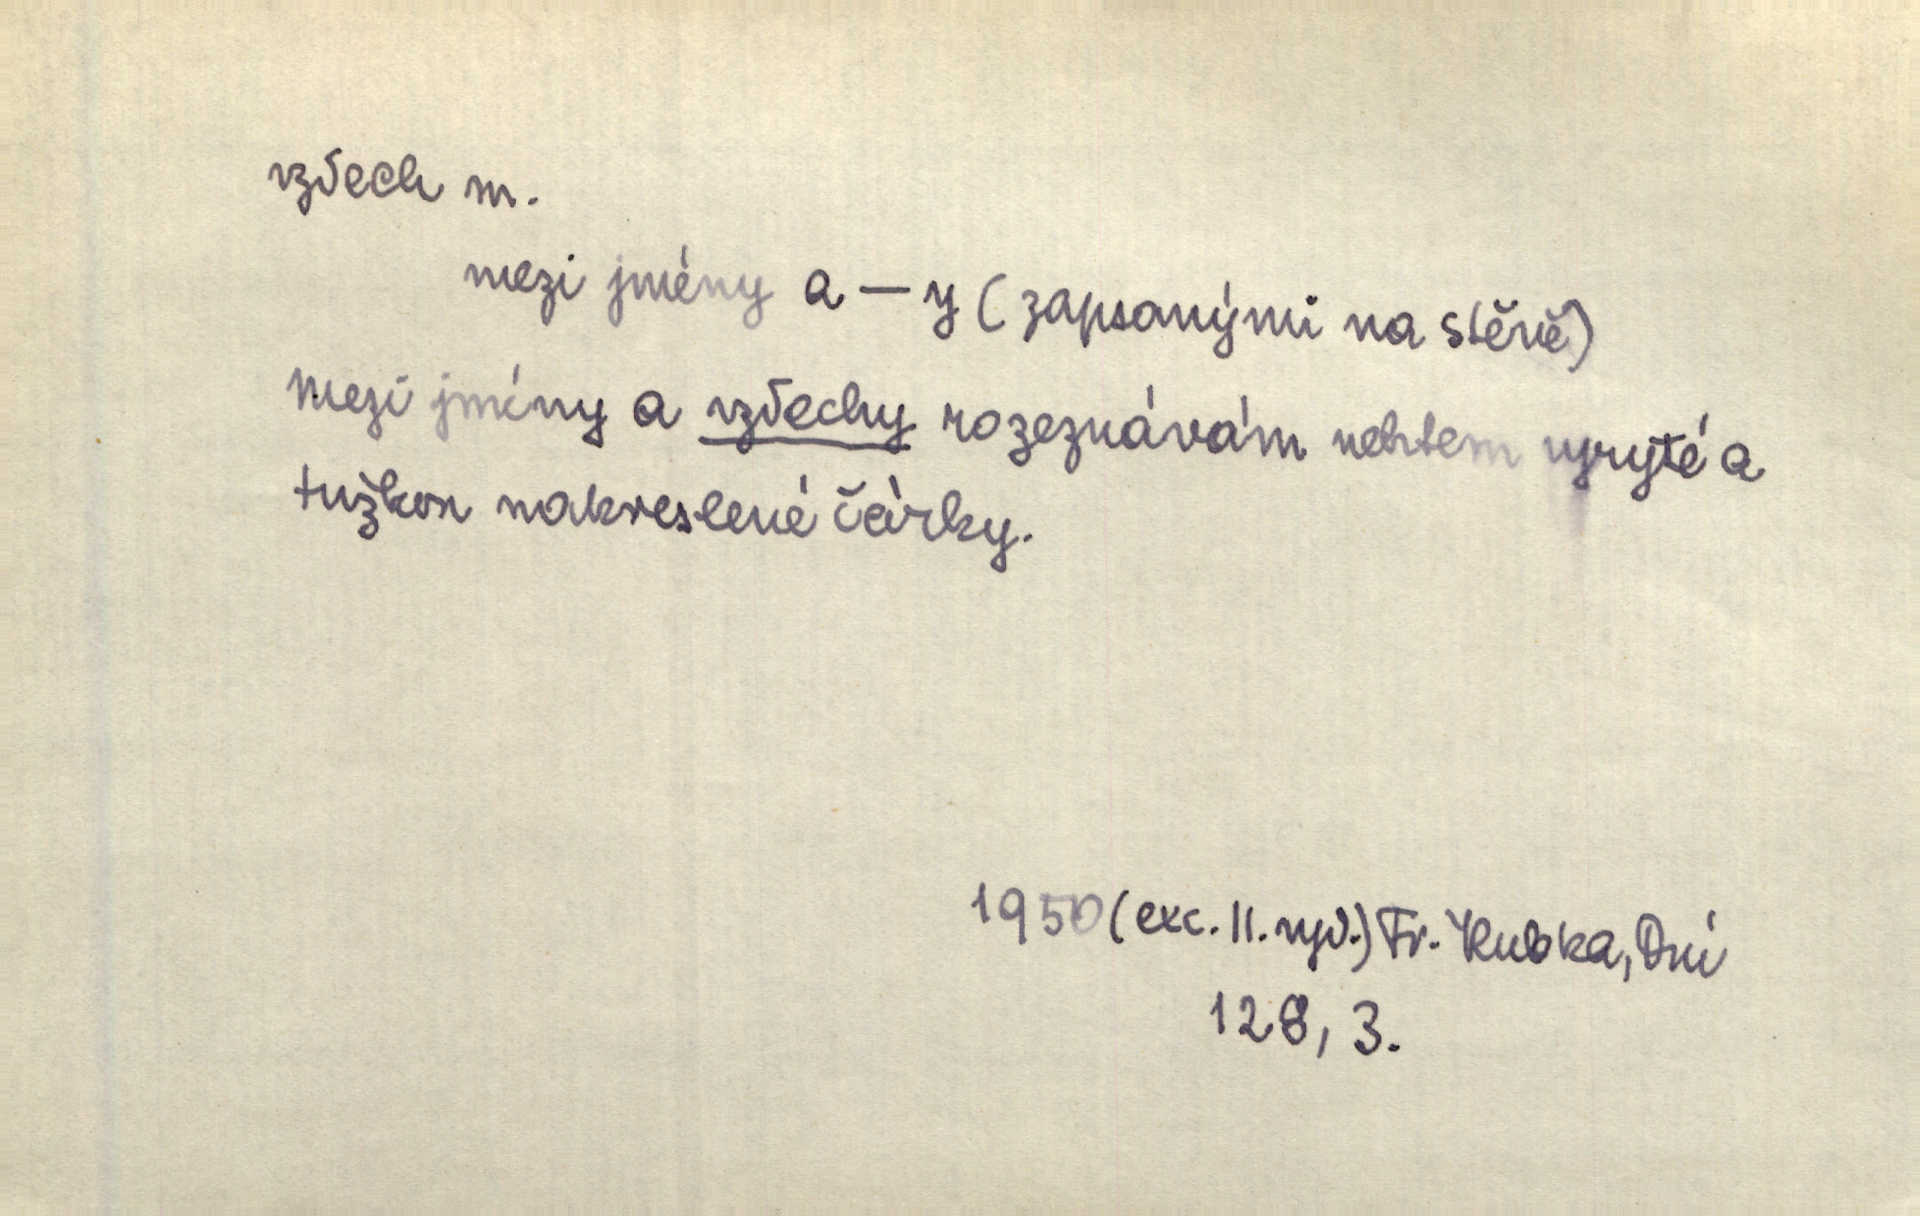 vzdech m.
mezi jmény a — y (zapsanými na stěně)
Mezi jmény a vzdechy rozeznávám nehtem vyryté a
tužkou nakreslené čárky.
1950 (exc. II. vyd.) Fr. Kubka, Dni
128, 3.